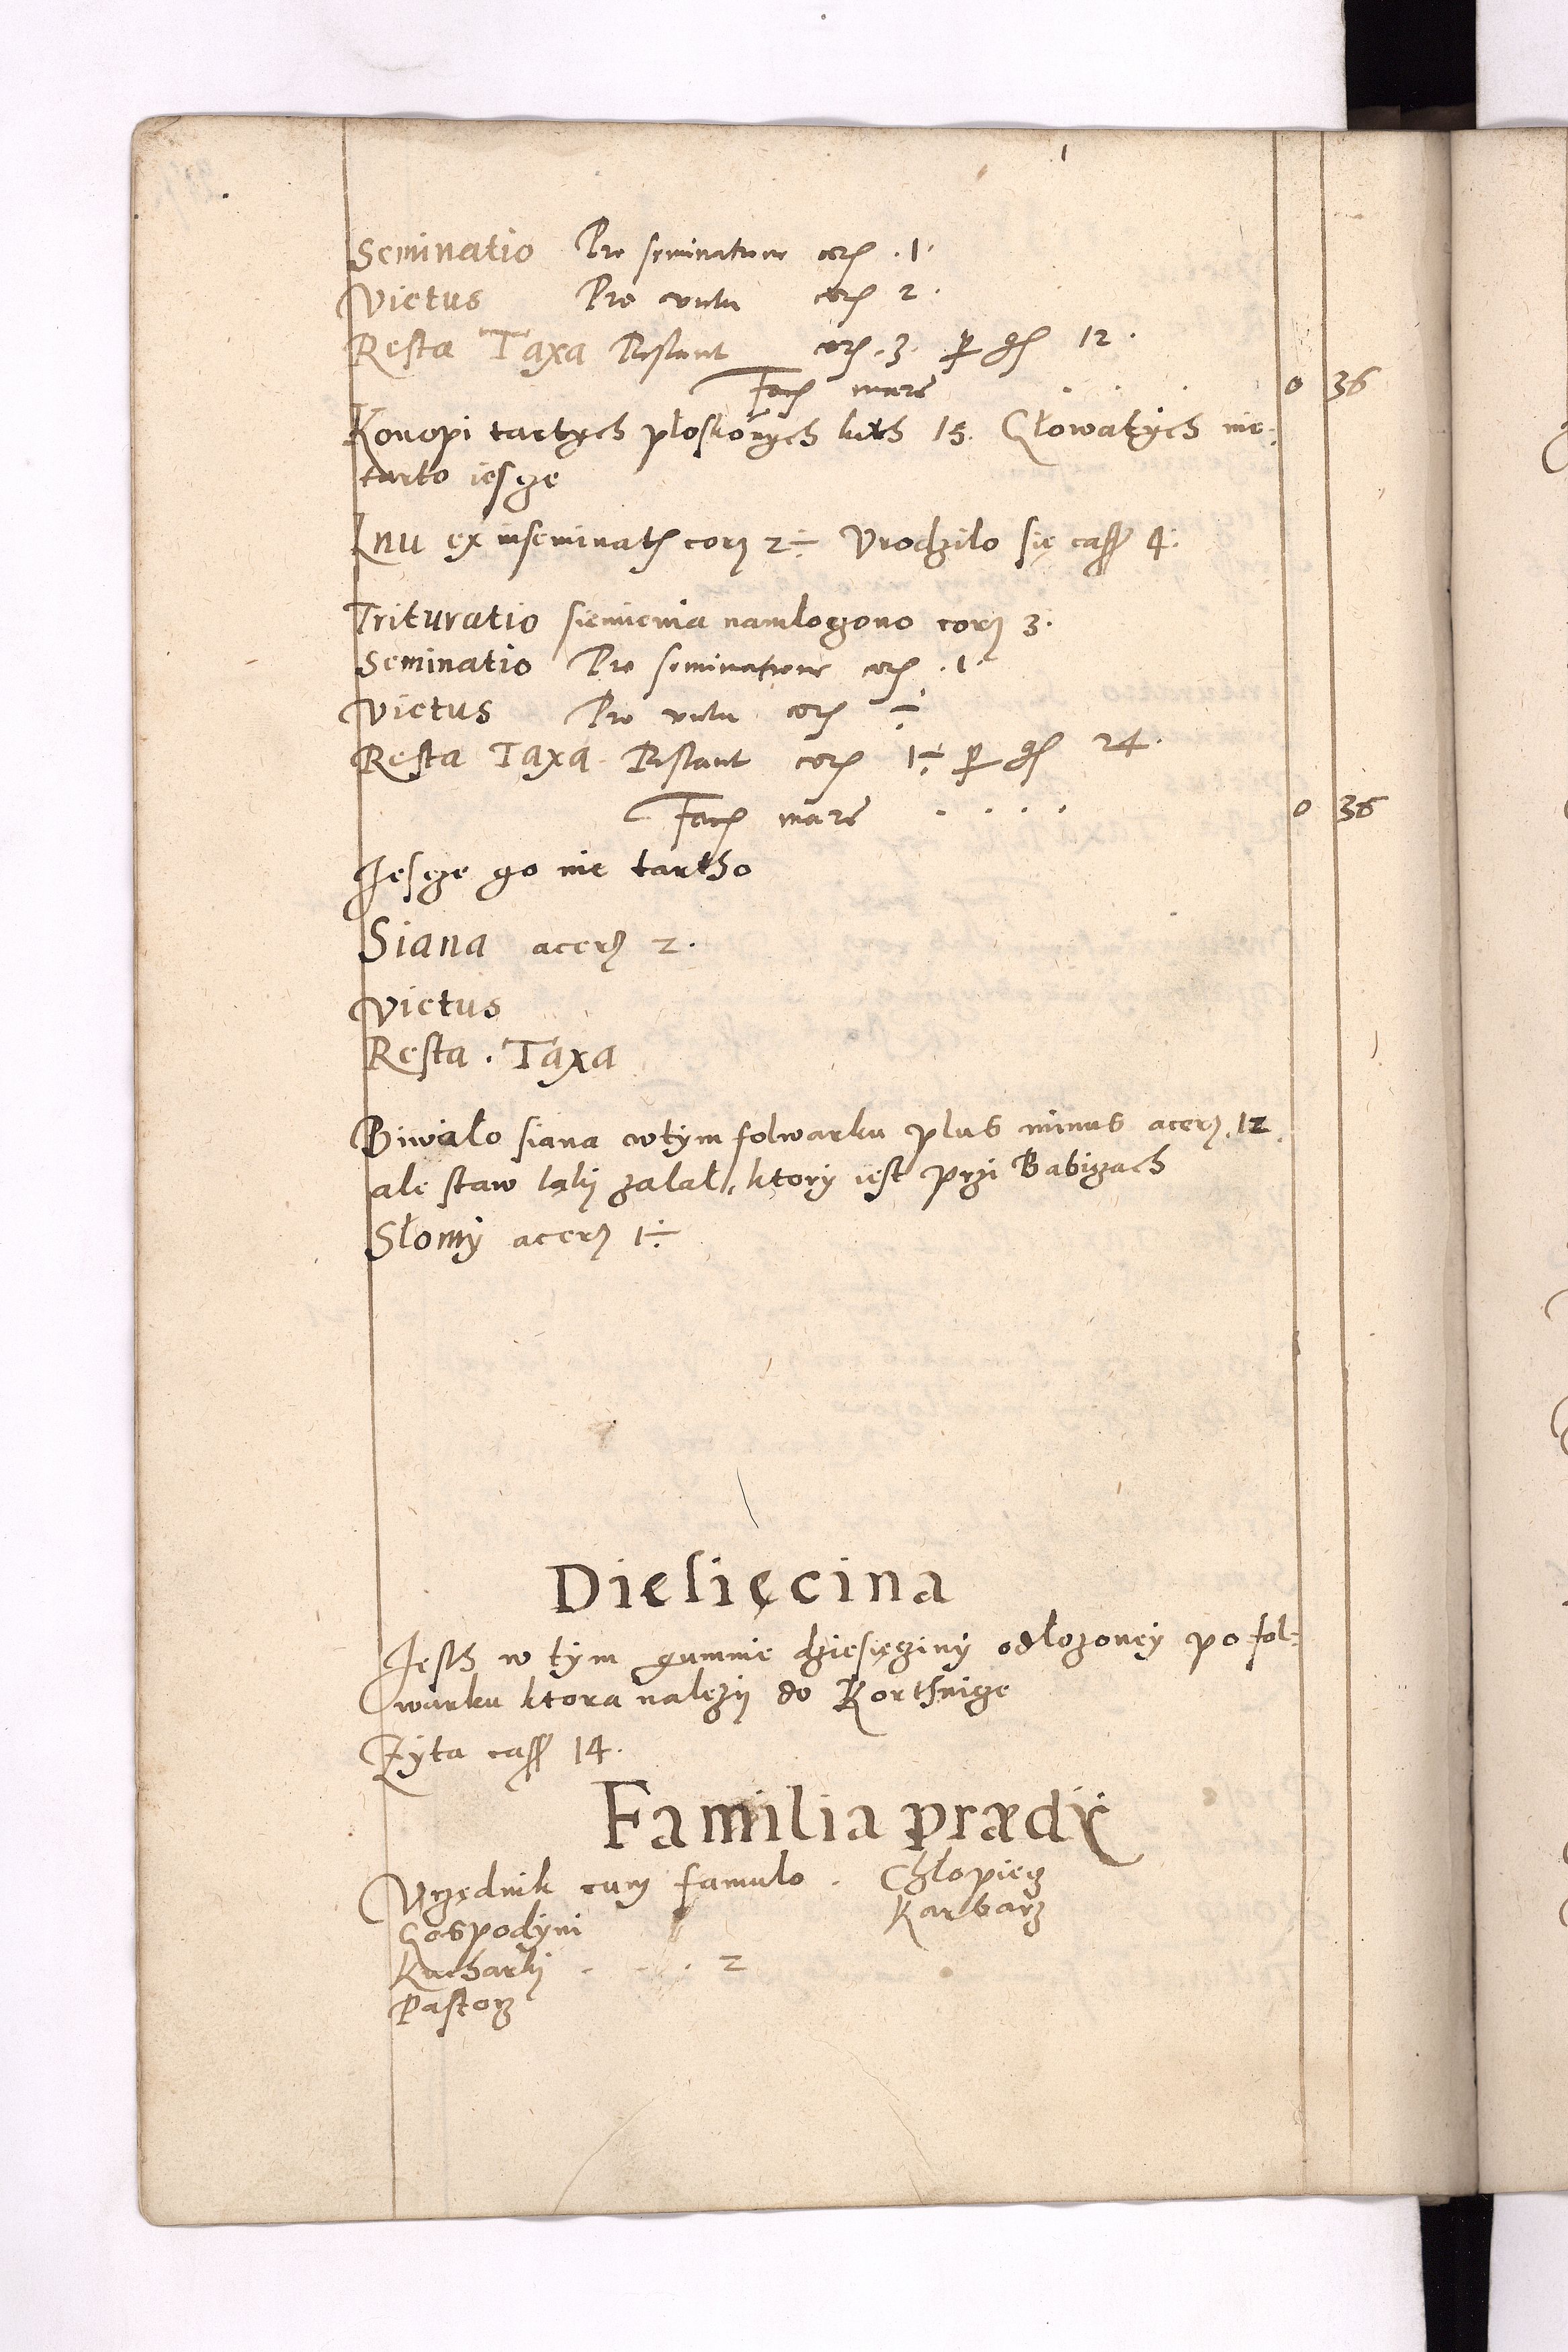 Seminatio Pro seminatione cor. 1.
Victus Pro victu cor. 2.
Resta Taxa Restant cor. 3. per gr. 12.
Facit marc. . . . 0 36
Konopi tartych płoskonych kith 15. Głowatych nie-
tarto iescze
Lnu ex inseminat. cor. 2÷ Vrodzilo się capp. 4.
Trituratio siemienia namlogono cor. 3.
Seminatio Pro seminatione cor. 1.
Victus Pro victu cor. ÷
Resta Taxa Restant cor. 1÷ per gr. 24.
Facit marc. . . . . 0 36
Iescze go nie tartho
Siana acer. 2.
Victus
Resta. Taxa
Biwało siana w tym folwarku plus minus acer. 12.
ale staw łąkij zalał, ktory iest przi Babiczach
Słomy acer. 1÷
Diesięcina
Jesth w tym gumnie dziesięciny odłozoney po fol-
warku ktora nalezij do Korthnicze
Zyta capp. 14.
Familia prædij
Vrzędnik cum famulo. Chłopiecz
Gospodyni Karbarz
Kucharkj . . . 2
Pastorz